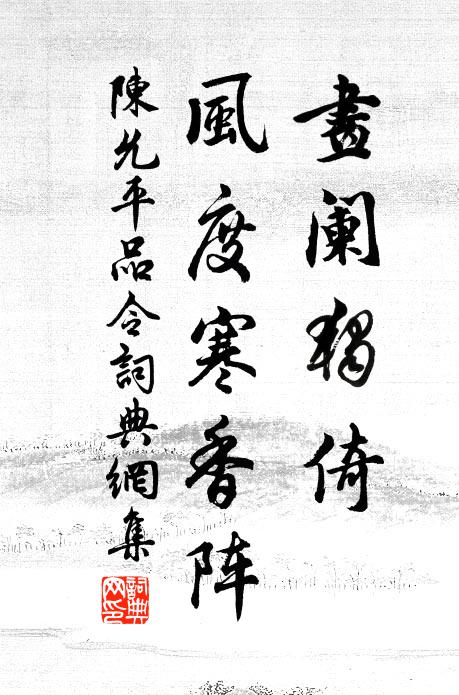 畫阑獨倚
風度寒香阵
陳允平品令詞典網集
詞典网印